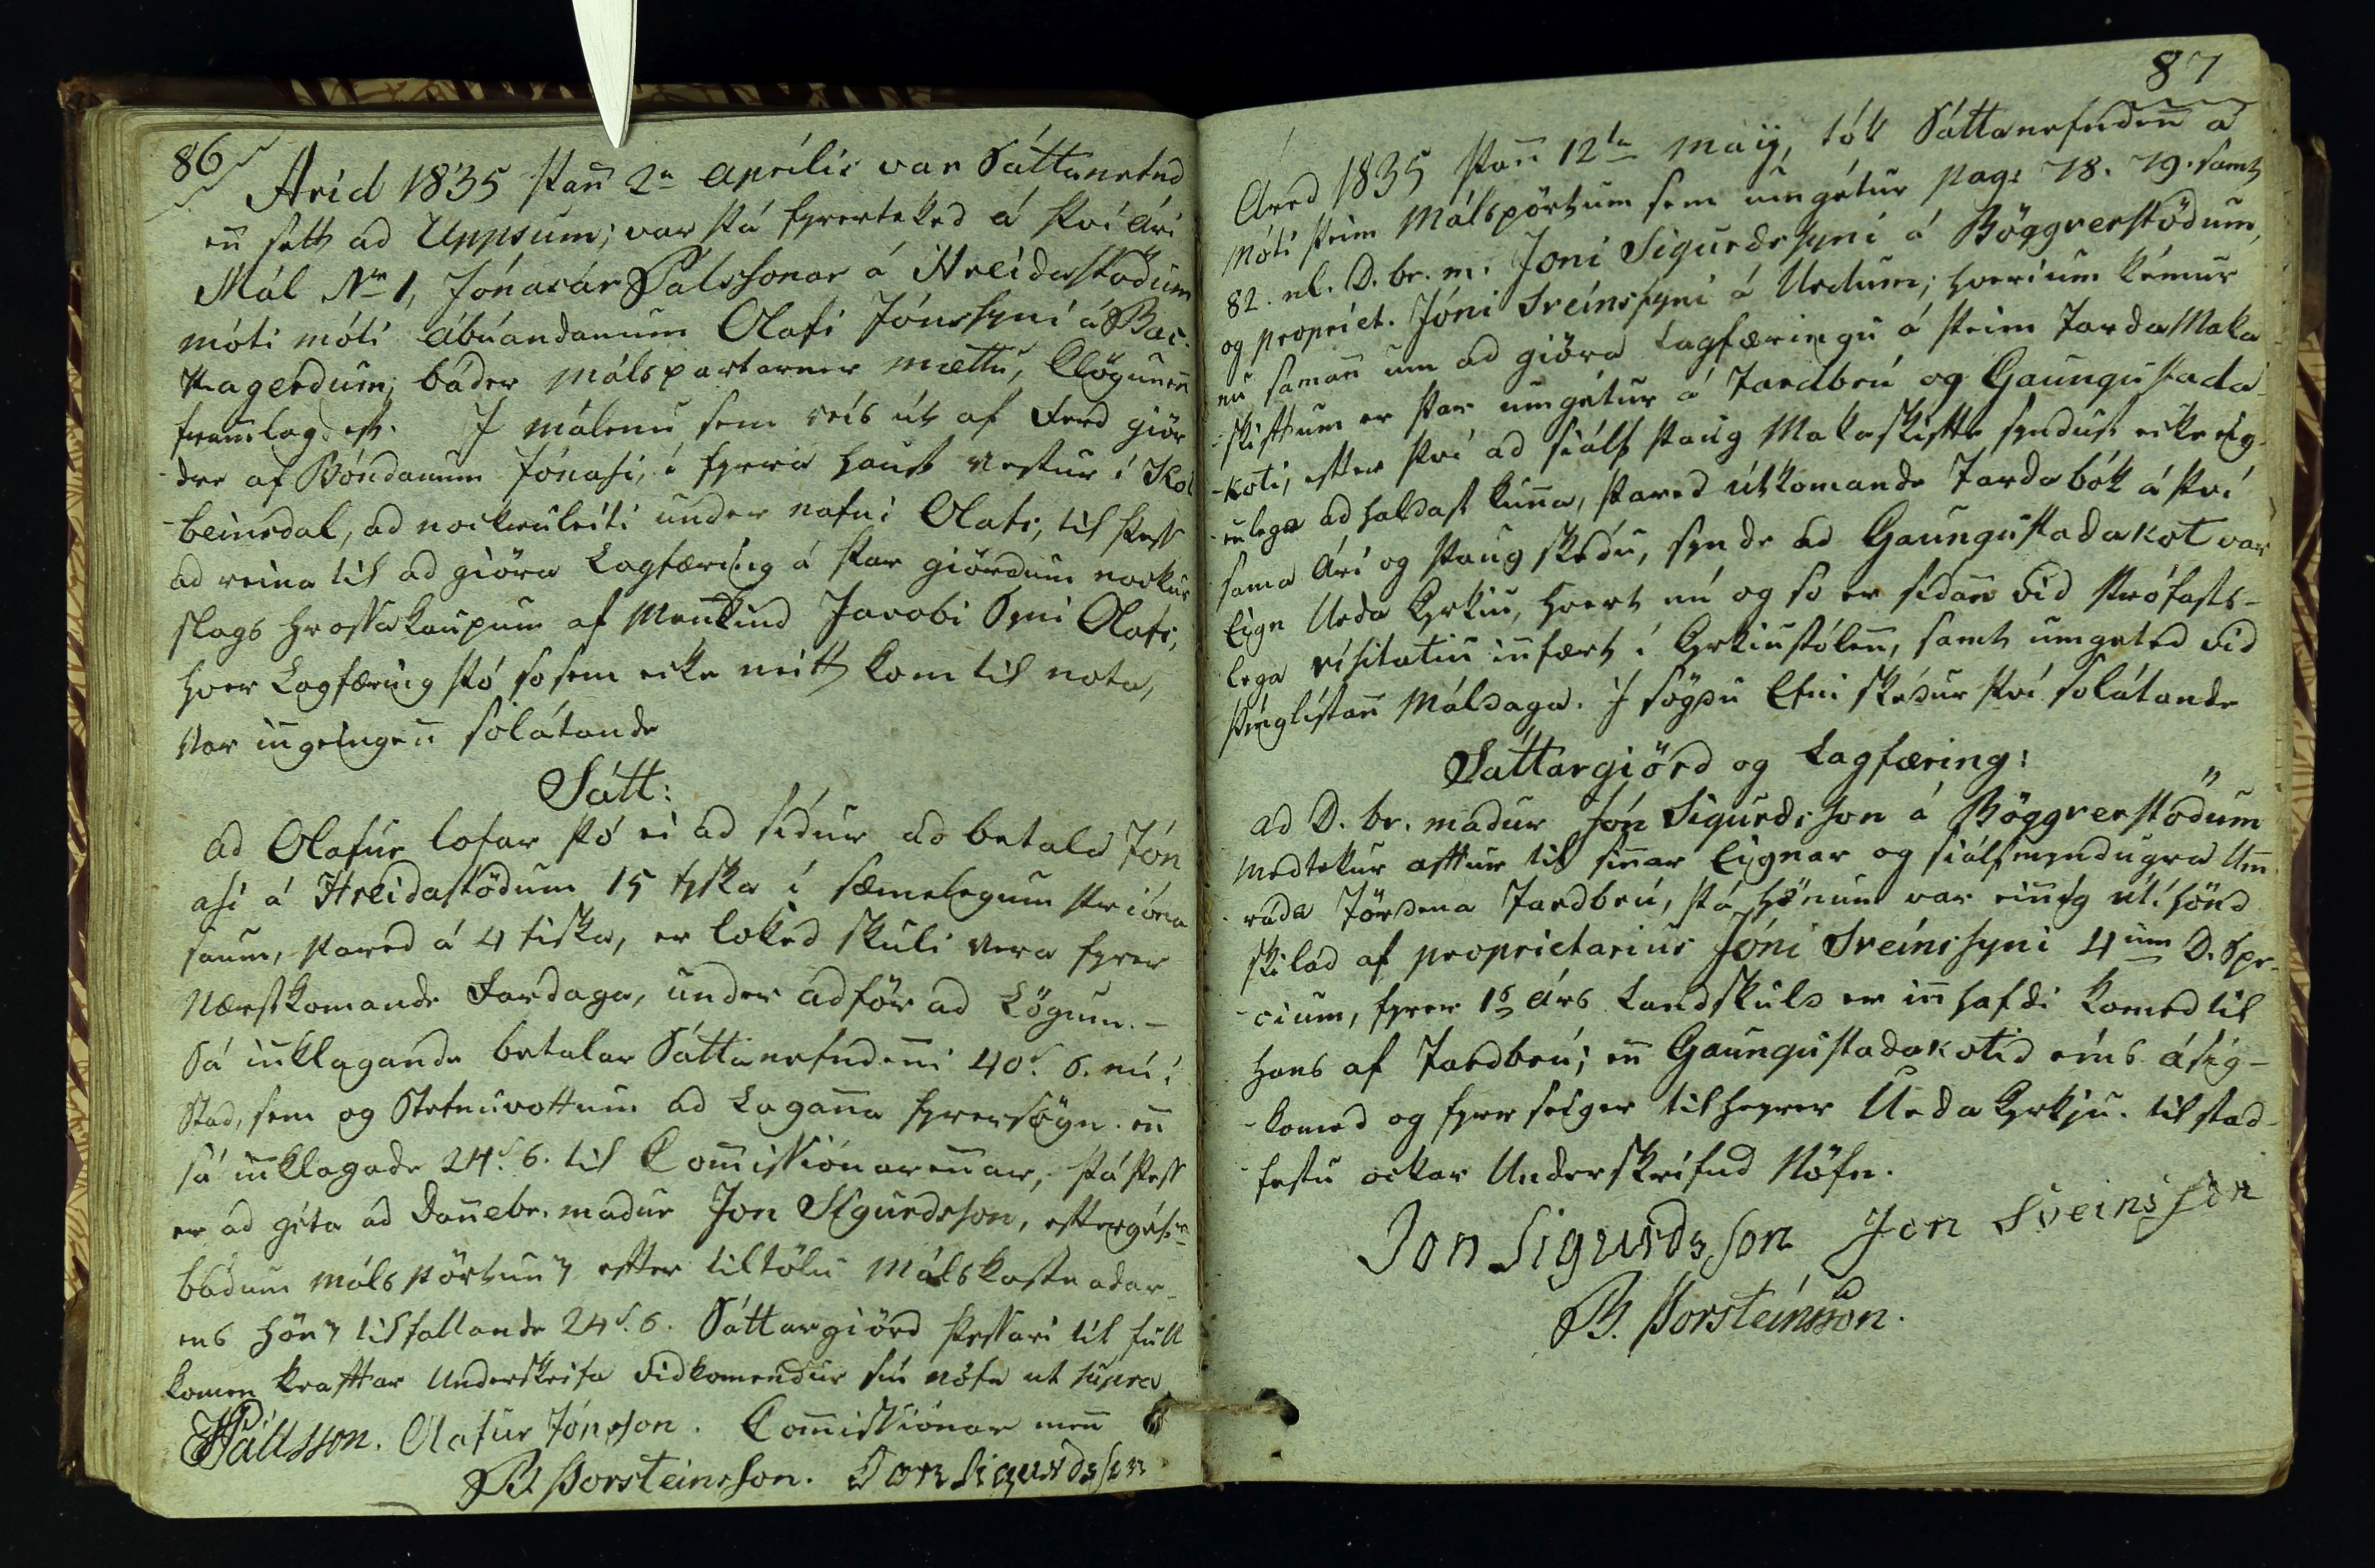 86
Arid 1835 þan̄ 2n Aprilis var Sáttanefnd
en̄ sett ad Uppsum; var þá fyrertekeð á því Ári
Mál Nr 1, Jónasar Pálssonar á Hreidastödum
móti móti Ábúandanum Olafi Jónssyni á Bac-
kagerdum; báder málspartarner mættu, Klögunen̄
fram̄lagdest. I málenu sem reis út af Ferd giör-
-dre af Bóndanum Jónasi, í fyrra haust vestur í Kol
-beinsdal, ad nockruleiti under nafni Olafs, til þess
ad reina til ad giöra Lagfæring á þar giördum nockurs
slags hrossakaupum af Man̄kind Jacobi Syni Olafs,
hver Lagfæring þó so sem ecke neitt kom til nota,
Var in̄geingen̄ solátande
Sátt:
ad Olafur lofar þó ei ad sídur ad betala Jón
asi á Hreidastödum 15 fiska í sæmelegum prióna
saum, pared á 4 fiska, er loked skuli vera fyrer
Næstkomande Fardaga, under adför ad Lögum. -
Sá in̄klagande betalar Sáttanefnden̄i 40 s. S. nú í
Stad, sem og Stefnuvottum ad Lagan̄a fyrersögn. en̄
sá in̄klagade 24 s. S. til Com̄issiónaren̄ar, þá þess
er ad géta ad Dan̄ebr. madur Jon Sigurdsson, eftergéfur
bádum málspörtum efter tiltölu Málskostnadar-
ens hönum tilfallande 24 s. S. Sáttargiörd þessari til full
komen kraftar Underskrifa Vidkomendur sín nöfn ut supra
JPálsson. Olafur Jónsson. Com̄issiónar men̄
B. Þorsteinsson. Jon Sigurdsson
87
Ared 1835 þan̄ 12ta Maij, tók Sáttanefnden̄ á
móti þeim Málspörtum sem umgétur pag: 78. 79. samt
82. nl. D. br. m. Joni Sigurdssyni á Böggverstödum,
og propriet. Jóni Sveinssyni á Urdum; hverium kémur
nú saman̄ um ad giöra Lagfæringu á þeim Jarda Maka
-skiftum er þar umgétur á Jardbrú og Gaungustada-
-koti, efter því ad siálf þaug Makaskifte syndust ecke eig-
-enlega ad haldast kun̄a, þared útkomande Jardabók á því
sama Ári og þaug skédu, synde ad Gaungustadakot var
Eign Urda Kyrkiu, hvert nú og so er sídan̄ vid prófasts-
lega visitatiu in̄fært í Kyrkiustólen̄, samt umgeted vid
þinglistan̄ Máldaga. I sögdu Efni skédur því solátande
Sáttargiörd og Lagfæring:
ad D. br. madur Jón Sigurdsson á Böggverstödum
medtekur aftur til sin̄ar Eignar og siálfmyndugra Um̄-
-ráda Jördena Jardbrú, þá hönum var ein̄ig útí hönd
skilad af proprietarius Jóni Sveinssyni 4um D. Spe-
-cium, fyrer 1s árs Landskuld er in̄ hafdi komed til
hans af Jardbrú; en̄ Gaungustadakotid eins ásig-
-komed og fyrer seiger tilheyrer Urda Kyrkju. til stad-
-festu ockar Underskrifud Nöfn.
Jon Sigurdsson Jon Sveinsson
B. Þorsteinsson.